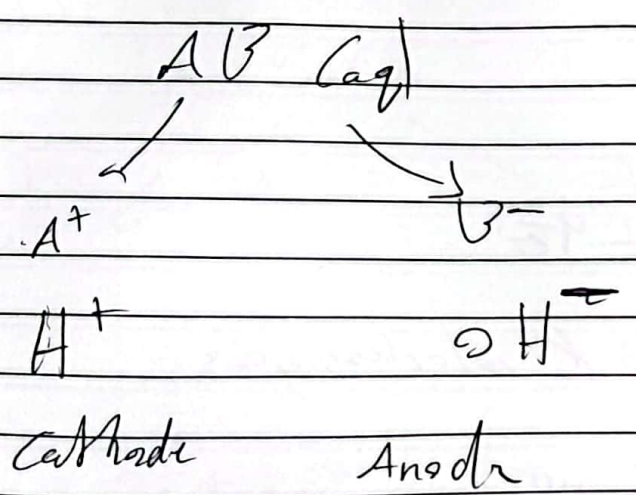 AB (aq)
A+ B-
H+ OH-
Cathode Anode